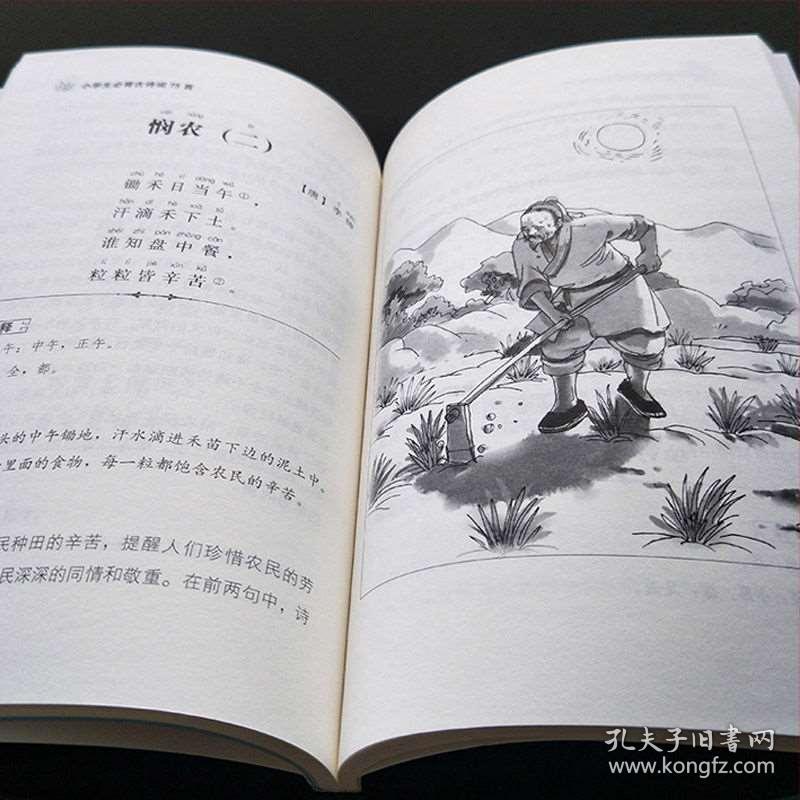 小学生必背古诗词 75 首
悯农（二）
【唐】李绅
chú hé rì dāng wǔ
锄禾日当午①，
hàn dī hé xià tǔ
汗滴禾下土。
shéi zhī pán zhōng cān
谁知盘中餐，
lì lì jiē xīn kǔ
粒粒皆辛苦②。
释
午：中午，正午。
全，都。
头的中午锄地，汗水滴进禾苗下边的泥土中。
里面的食物，每一粒都饱含农民的辛苦。
民种田的辛苦，提醒人们珍惜农民的劳
民深深的同情和敬重。在前两句中，诗
孔夫子旧书网
www.kongfz.com